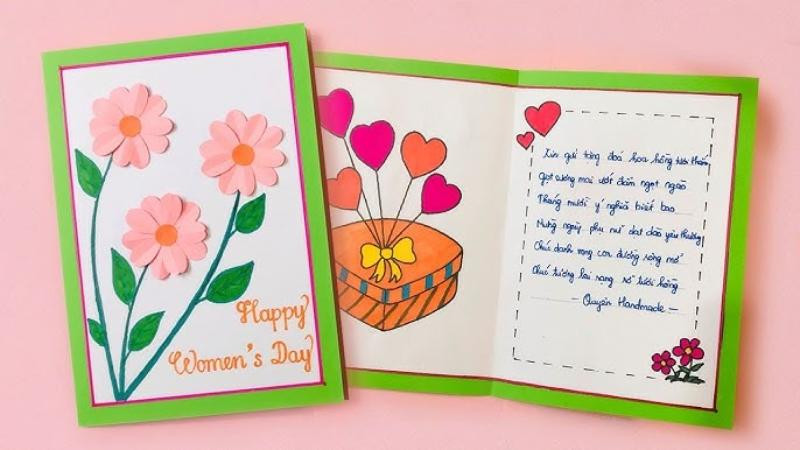 Happy
Women's Day
Xin gửi tặng đoá hoa hồng tươi thắm
Giọt sương mai ướt đẫm ngọt ngào
Tháng mười ý nghĩa biết bao
Mừng ngày phụ nữ dạt dào yêu thương
Chúc danh vọng con đường rộng mở
Chúc tương lai rạng rỡ tươi hồng
- Quyên Handmade -